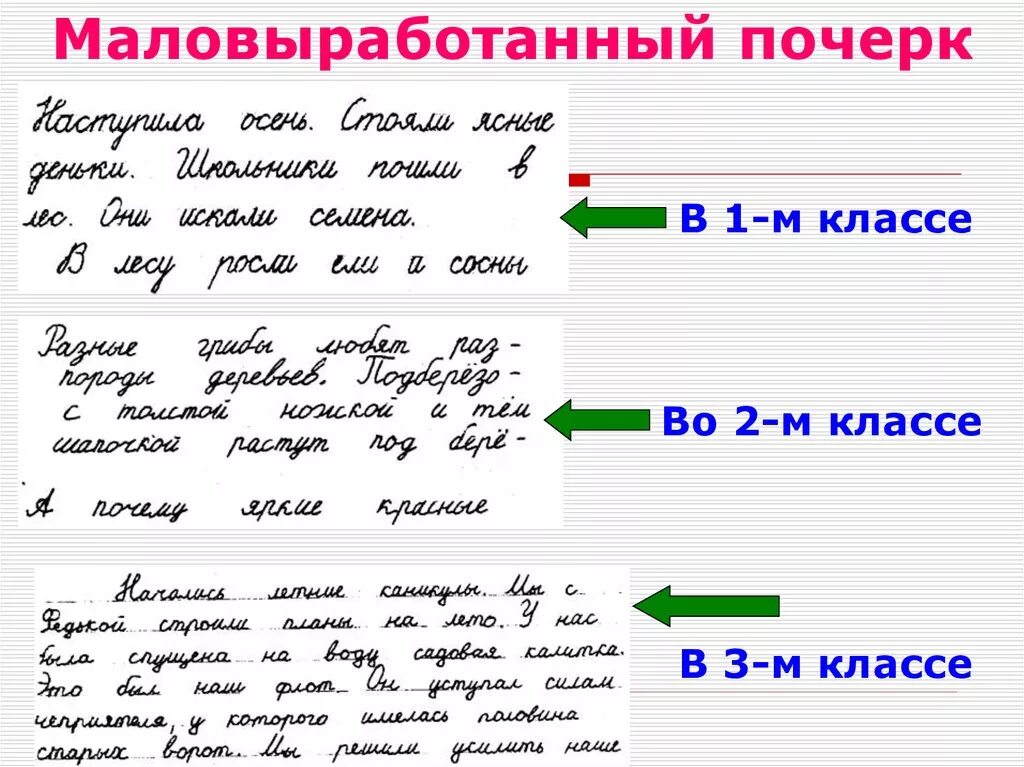 Маловыработанный почерк
Наступила осень. Стояли ясные
деньки. Школьники пошли в
лес. Они искали семена.
В лесу росли ели и сосны
В 1-м классе
Разные грибы любят раз-
породы деревьев. Подберёзо-
с толстой ножкой и тём
шапочкой растут под берё-
А почему яркие красные
Во 2-м классе
Начались летние каникулы. Мы с
Федькой строили планы на лето. У нас
была спущена на воду садовая калитка.
Это был наш флот. Он уступал силам
неприятеля, у которого имелась половина
старых ворот. Мы решили усилить наше
В 3-м классе